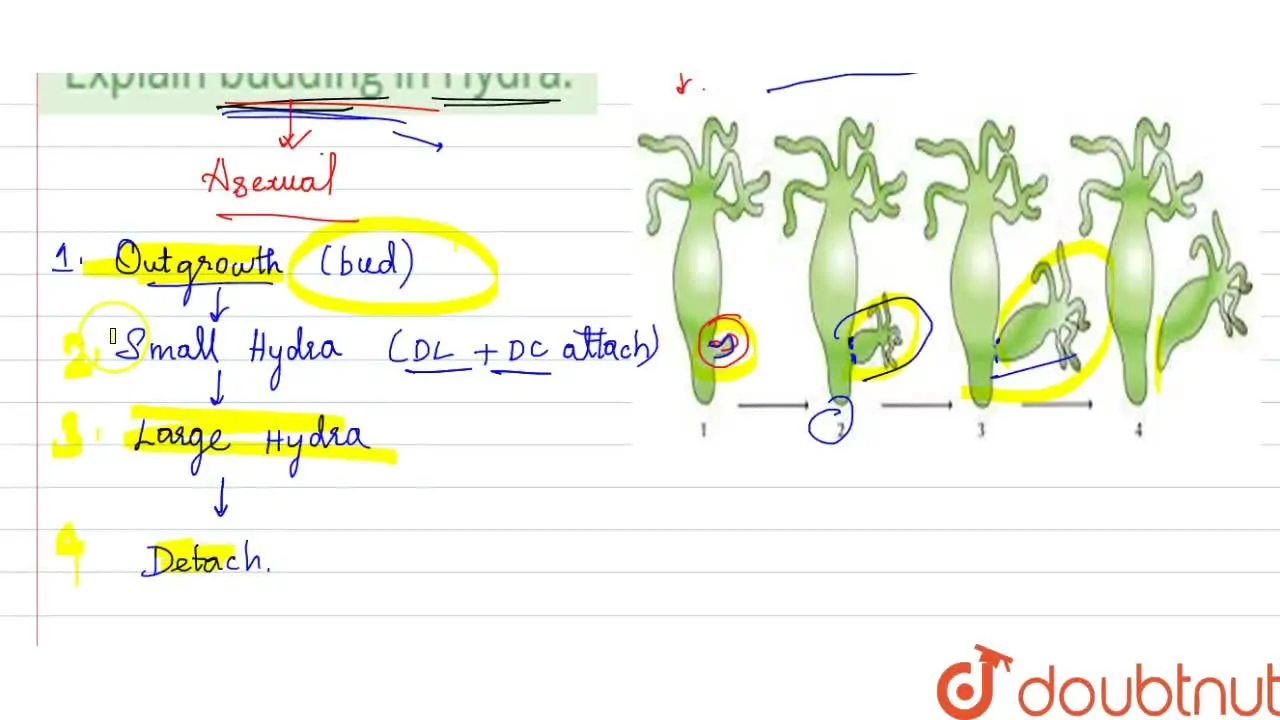 Explain budding in Hydra.
Asexual
1. Outgrowth (bud)
2. Small Hydra (DL + DC attach)
3. Large Hydra
4 Detach.
1 2 3 4
doubtnut